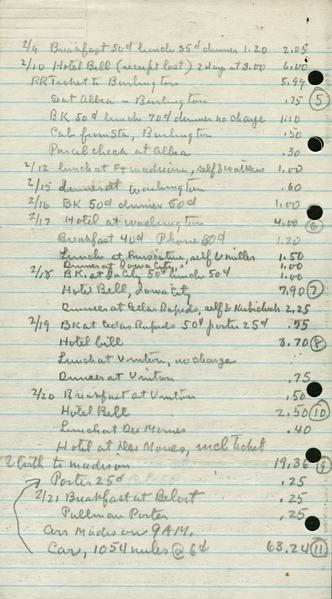 2/9 Breakfast 50¢ lunch 35¢ dinner 1.20 2.05
2/10 Hotel Bill (receipt lost) 2 day at 3.00 6.00
RR Ticket to Burlington 5.99
Seat Albia - Burlington .75 (5)
BK 50¢ lunch 70¢ dinner no charge 1.10
Cab from Sta, Burlington .50
Parcel check at Albia .30
2/12 lunch at Ft Madison, self & 1.00
2/15 dinner at Washington .60
2/16 BK 50¢ dinner 50¢ 1.00
2/17 Hotel at Washington 4.00 (6)
Breakfast 40¢ Phone 80¢ 1.20
Lunch at self & Miller 1.50
Dinner at Iowa City 1.00
2/18 BK at Ia City 50¢ lunch 50¢ 1.00
Hotel Bell, Iowa City 7.90 (7)
Dinner at Cedar Rapids, self & 2.25
2/19 BK at Cedar Rapids 50¢ porter 25¢ .75
Hotel bill 3.70 (8)
Lunch at Vinton, no charge
Dinner at Vinton .75
2/20 Breakfast at Vinton .50
Hotel Bell 2.50 (10)
Lunch at Des Moines .40
Hotel at Des Moines, incl ticket
& berth to Madison 19.36 (9)
Porter 25¢ .25
2/21 Breakfast at Beloit .25
Pullman Porter .25
Arr Madison 9 A.M.
Car, 1054 miles @ 6¢ 63.24 (11)